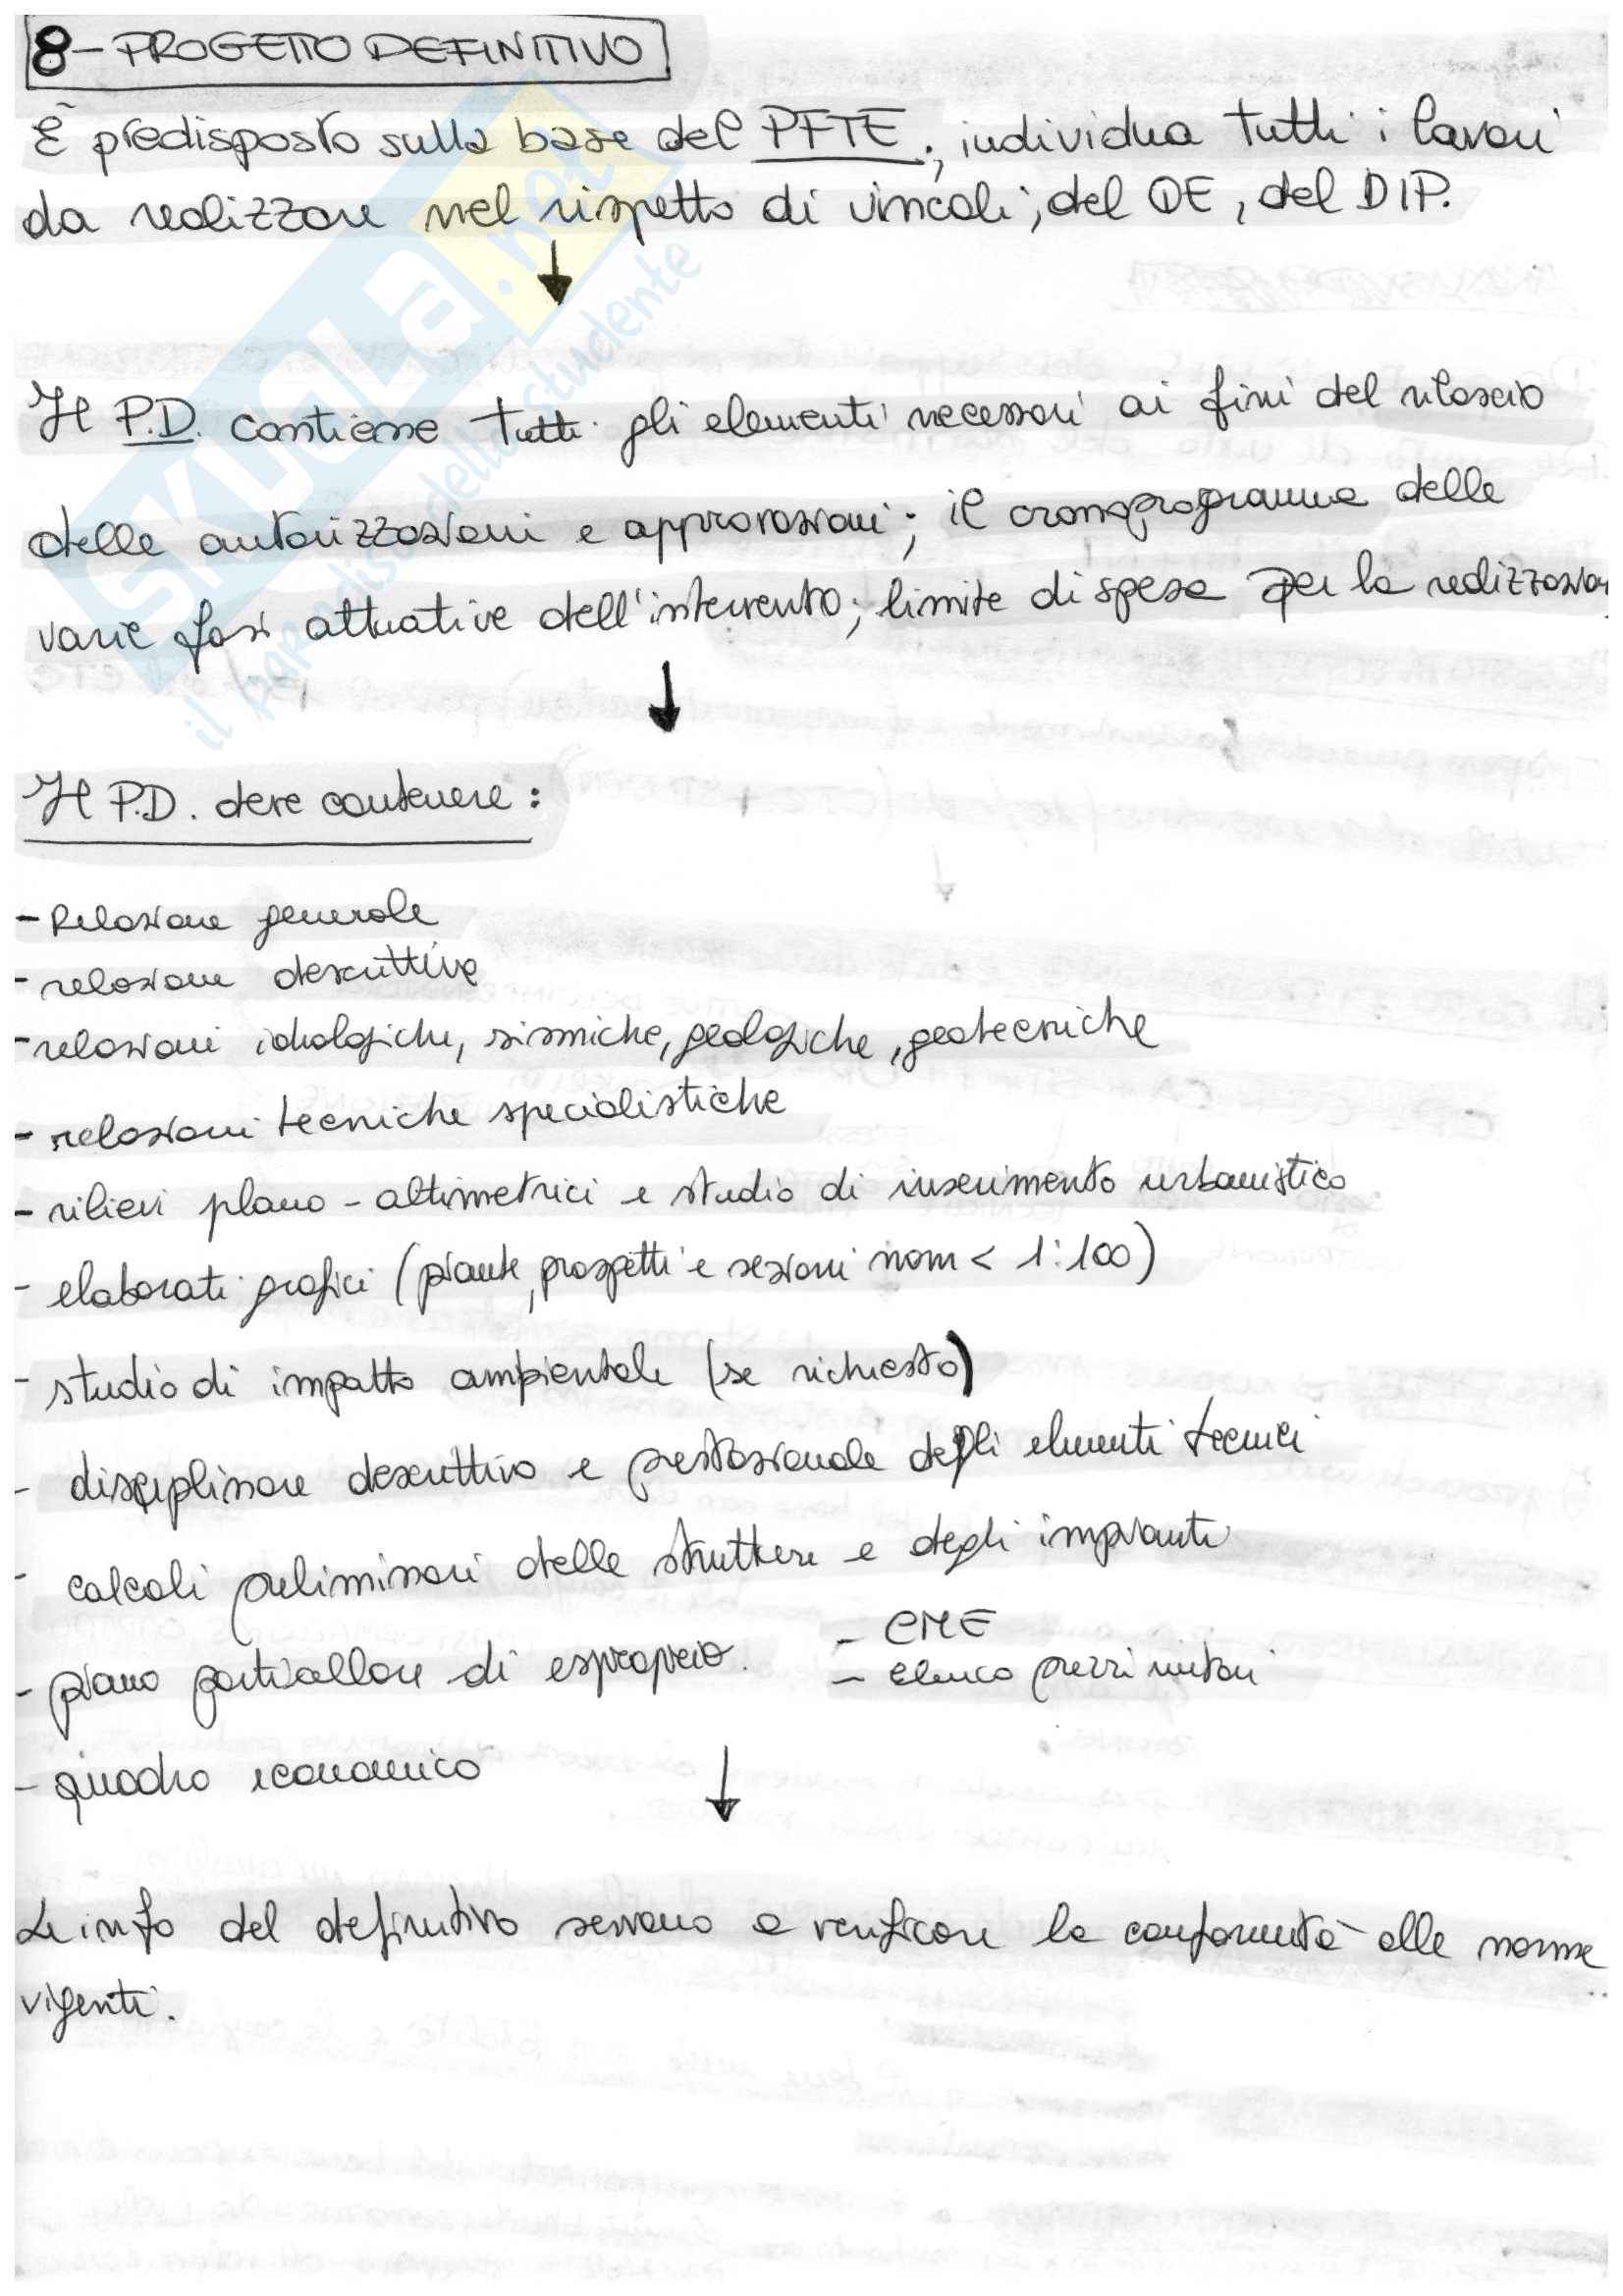 8 - PROGETTO DEFINITIVO
È predisposto sulla base del PFTE; individua tutti i lavori
da realizzare nel rispetto di vincoli, del QE, del DIP.
Il P.D. contiene tutti gli elementi necessari ai fini del rilascio
delle autorizzazioni e approvazioni; il cronoprogramma delle
varie fasi attuative dell'intervento; limite di spesa per la realizzazion
Il P.D. deve contenere:
- Relazione generale
- relazione descrittiva
- relazioni idrologiche, sismiche, geologiche, geotecniche
- relazioni tecniche specialistiche
- rilievi plano-altimetrici e studio di inserimento urbanistico
- elaborati grafici (piante, prospetti e sezioni non < 1:100)
- studio di impatto ambientale (se richiesto)
- disciplinare descrittivo e prestazionale degli elementi tecnici
- calcoli preliminari delle strutture e degli impianti
- piano particellare di esproprio.
- CME
- Elenco prezzi unitari
- quadro economico
Le info del definitivo servono a verificare la conformità alle norme
vigenti.
SKUOLA.net
il paradiso dello studente